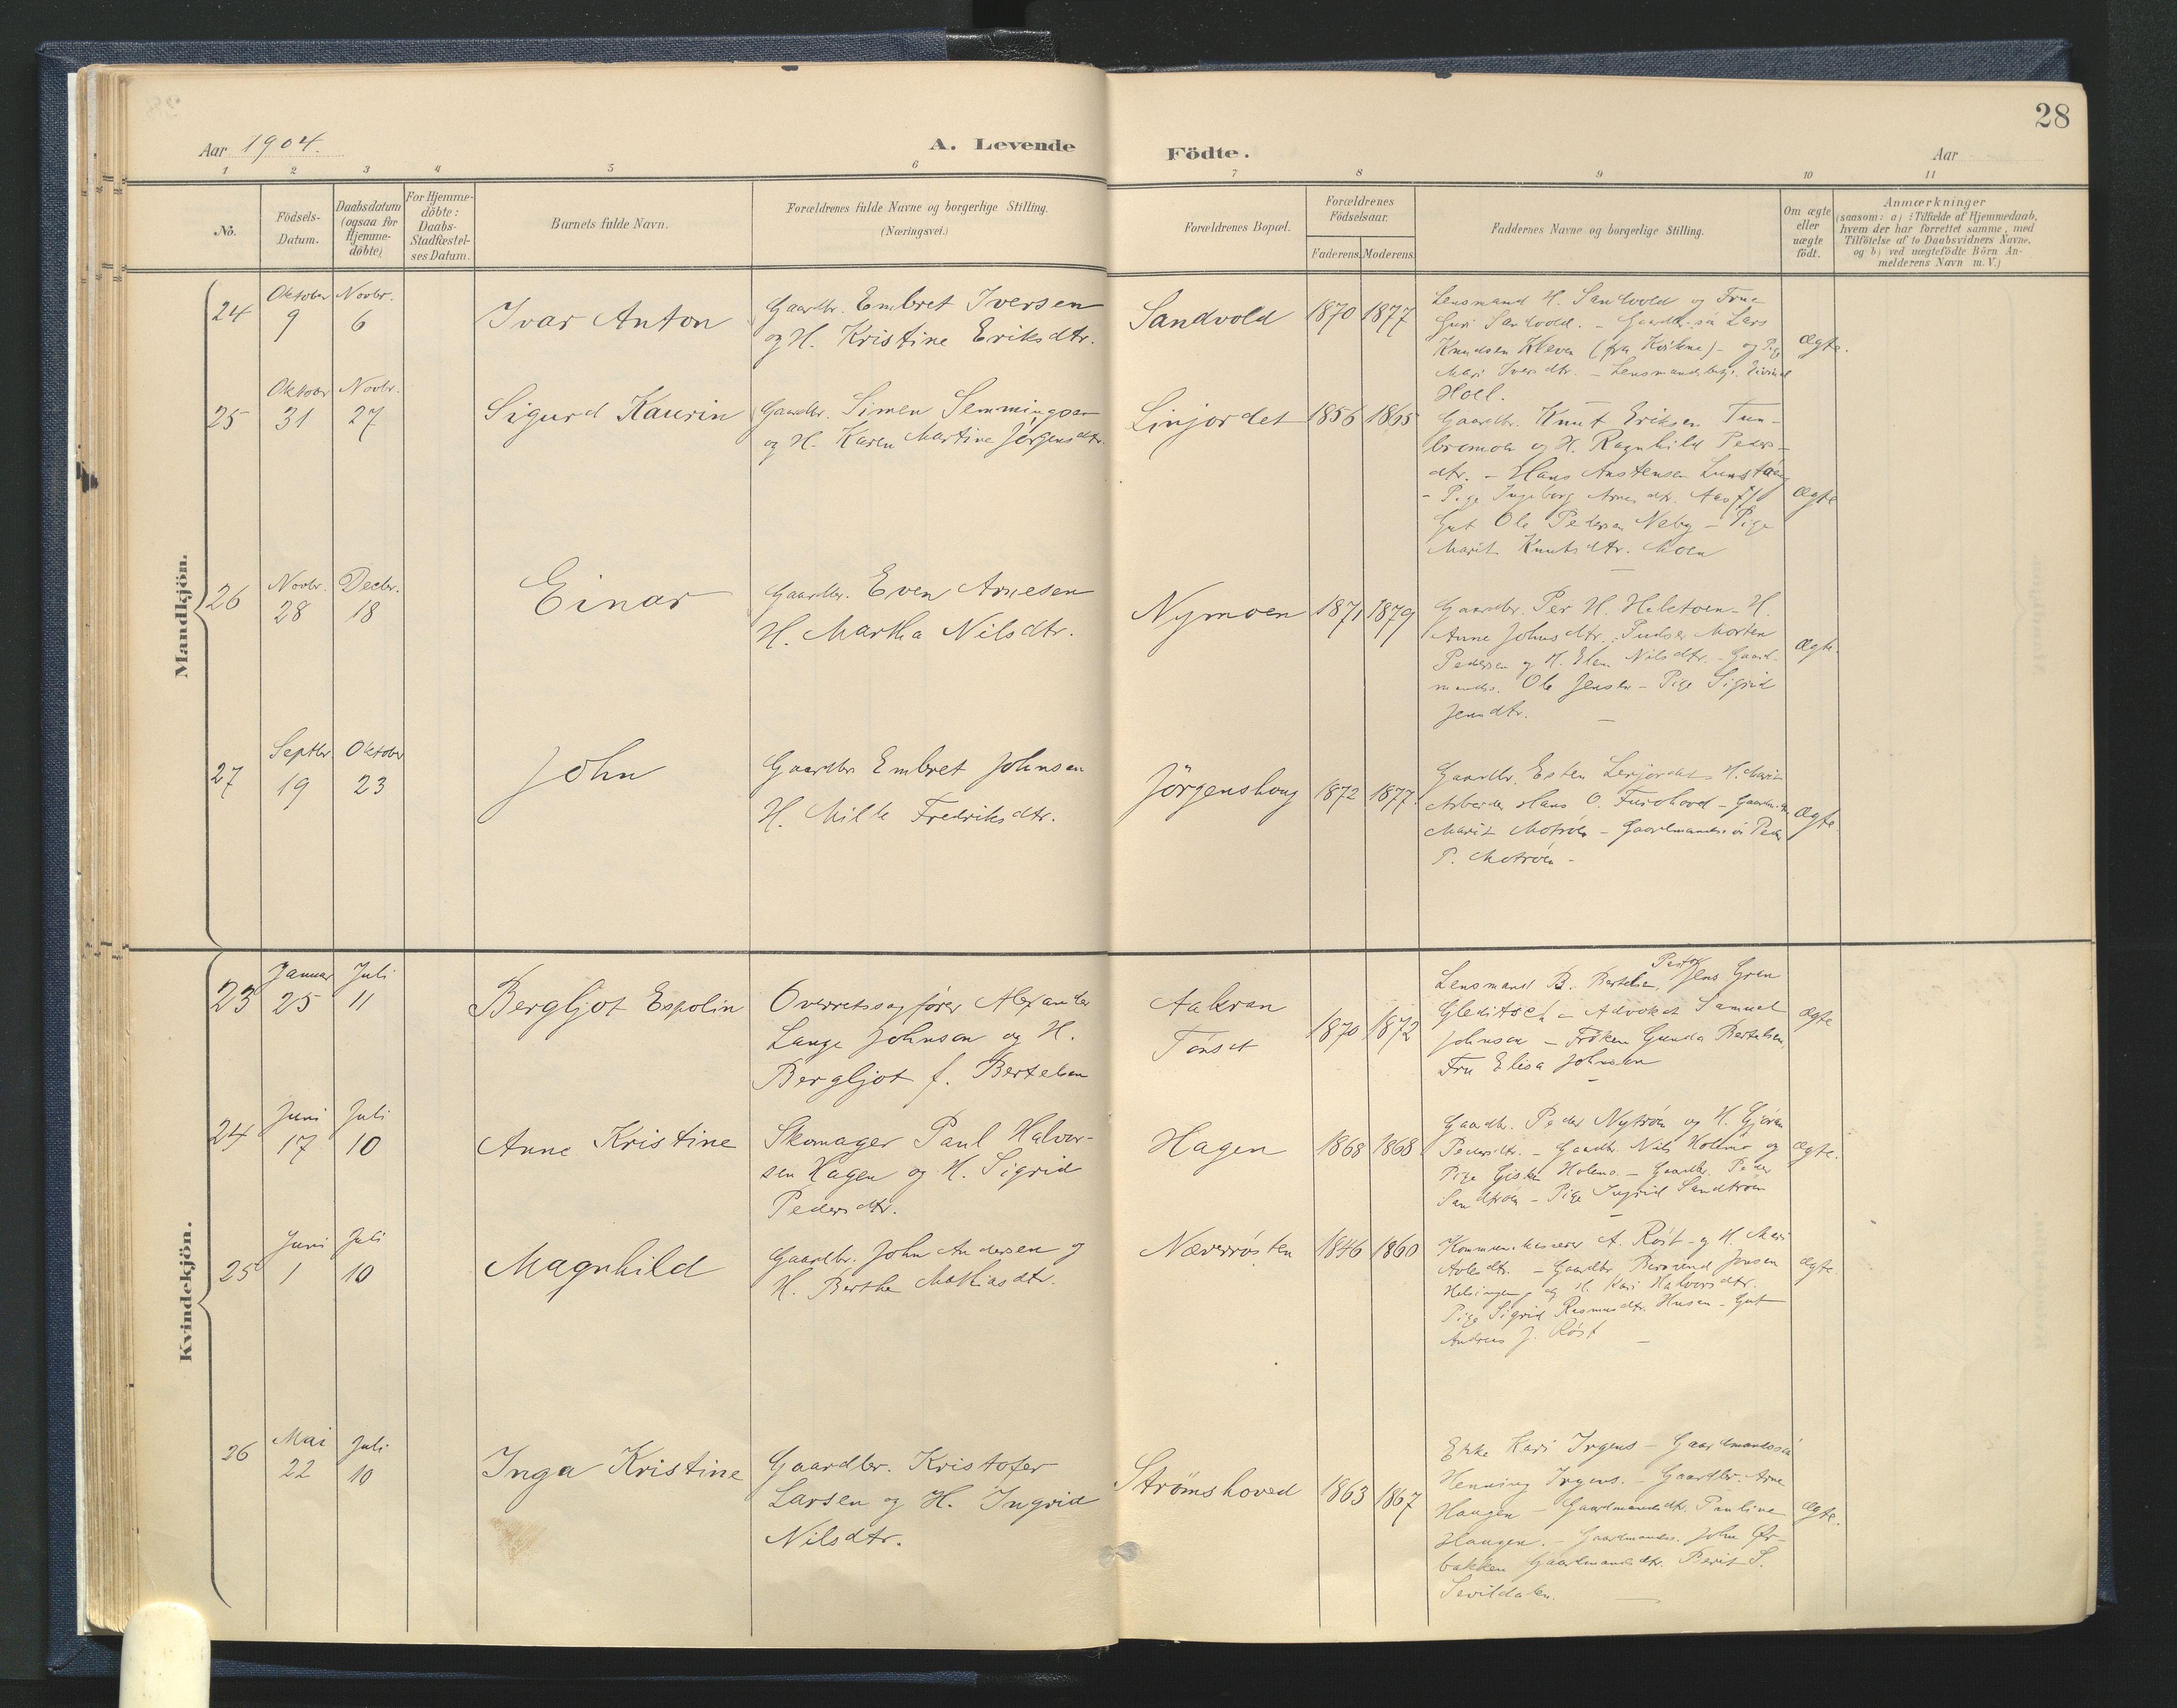 28
Aar 1904.
A. Levende Födte.
Aar
1 2 3 4 5 6 7 8 9 10 11
No.
Födsels-
Datum.
Daabsdatum
(ogsaa for
Hjemme-
döbte)
For Hjemme-
döbte:
Daabs-
Stadfæstel-
ses Datum.
Barnets fulde Navn.
Forældrenes fulde Navne og borgerlige Stilling.
(Næringsvei.)
Forældrenes Bopæl.
Forældrenes
Födselsaar.
Faderens. Moderens.
Faddernes Navne og borgerlige Stilling.
Om ægte
eller
uægte
födt.
Anmærkninger
(saasom: a) i Tilfælde af Hjemmedaab,
hvem der har forrettet samme, med
Tilföielse af to Daabsvidners Navne,
og b) ved uægtefödte Börn An-
melderens Navn m. V.)
Mandkjön.
24
Oktober
9
Novbr.
6
Ivar Anton
Gaardbr. Embret Iversen
og H. Kristine Eriksdtr.
Sandvold
1870
1877
Lensmand H. Sandvold og Frue
Guri Sandvold. - Gaardbr. sön Lars
Knudsen Kleven (fra Kvikne) - og Pige
Mari Iversdtr. - Lensmandsbetj. Eivind
Hoel.
ægte.
25
Oktober
31
Novbr.
27
Sigurd Kaurin
Gaardbr. Simen Semmingsen
og H. Karen Martine Jörgensdtr.
Linjordet
1856
1865
Gaardbr. Knut Eriksen Tun-
bromoen og H. Ragnhild Peders-
dtr. - Hans Anstensen
- Pige Ingeborg Arnesdtr.
Gut Ole Pedersen Neby - Pige
Marit Knutsdtr. Moen
ægte
26
Novbr.
28
Decbr.
18
Einar
Gaardbr. Even Arnesen
H. Martha Nilsdtr.
Nymoen
1871
1879
Gaardbr. Per H. - H.
Anne Johnsdtr. Morten
Pedersen og H. Elen Nilsdtr. - Gaard-
mands. Ole Jensen - Pige Sigrid
Jensdtr.
ægte.
27
Septbr.
19
Oktober
23
John
Gaardbr. Embret Johnsen
H. Milla Fredriksdtr.
Jörgenshaug
1872
1877.
Gaardbr. Esten H. Marit
Arbeider Hans O. Furohovd -
Marit Motröen - Gaardmandssön Peder
P. Motröen -
ægte.
Kvindekjön.
23
Januar
25
Juli
11
Bergljot Espolin
Overretssagförer Alexander
Lange Johnson og H.
Bergljot f. Bertelsen
Aakran
Tönset
1870
1872
Lensmand B. Bertelsen, Pastor Jens Gran
Gleditsch - Advokat Samuel
Johnson - Fröken Gunda Bertelsen,
Fru Elisa Johnson
ægte
24
Juni
17
Juli
10
Anne Kristine
Skomager Paul Halvor-
sen Hagen og H. Sigrid
Pedersdtr.
Hagen
1868
1868
Gaardbr. Peder Nytröen og H. Gjören
Pedersdtr. - Gaardbr. Nils Holmo og
Pige Gisken Holmo. - Gaardbr. Peder
Sandtröen - Pige Ingrid Sandtröen
ægte.
25
Juni
1
Juli
10
Magnhild
Gaardbr. John Andersen og
H. Berthe Mathiasdtr.
Næverrösten
1846
1860
A. Röst - og H. Mari
- Gaardbr. Jonsen
og H. Kari Halvorsdtr.
Pige Sigrid Rasmusdtr. Husan - Gut
Andreas J. Röst
ægte.
26
Mai
22
Juli
10
Inga Kristine
Gaardbr. Kristofer
Larsen og H. Ingrid
Nilsdtr.
Strömshoved
1863
1867
Enke Kari Irgens - Gaardmandssön
Henning Irgens. - Gaardbr. Arne
Haugen - Gaardmandsdtr. Pauline
Haugen. - Gaardmands. John Ör-
bakken Gaardmandsdtr. Berit S.
Sevildalen.
ægte.